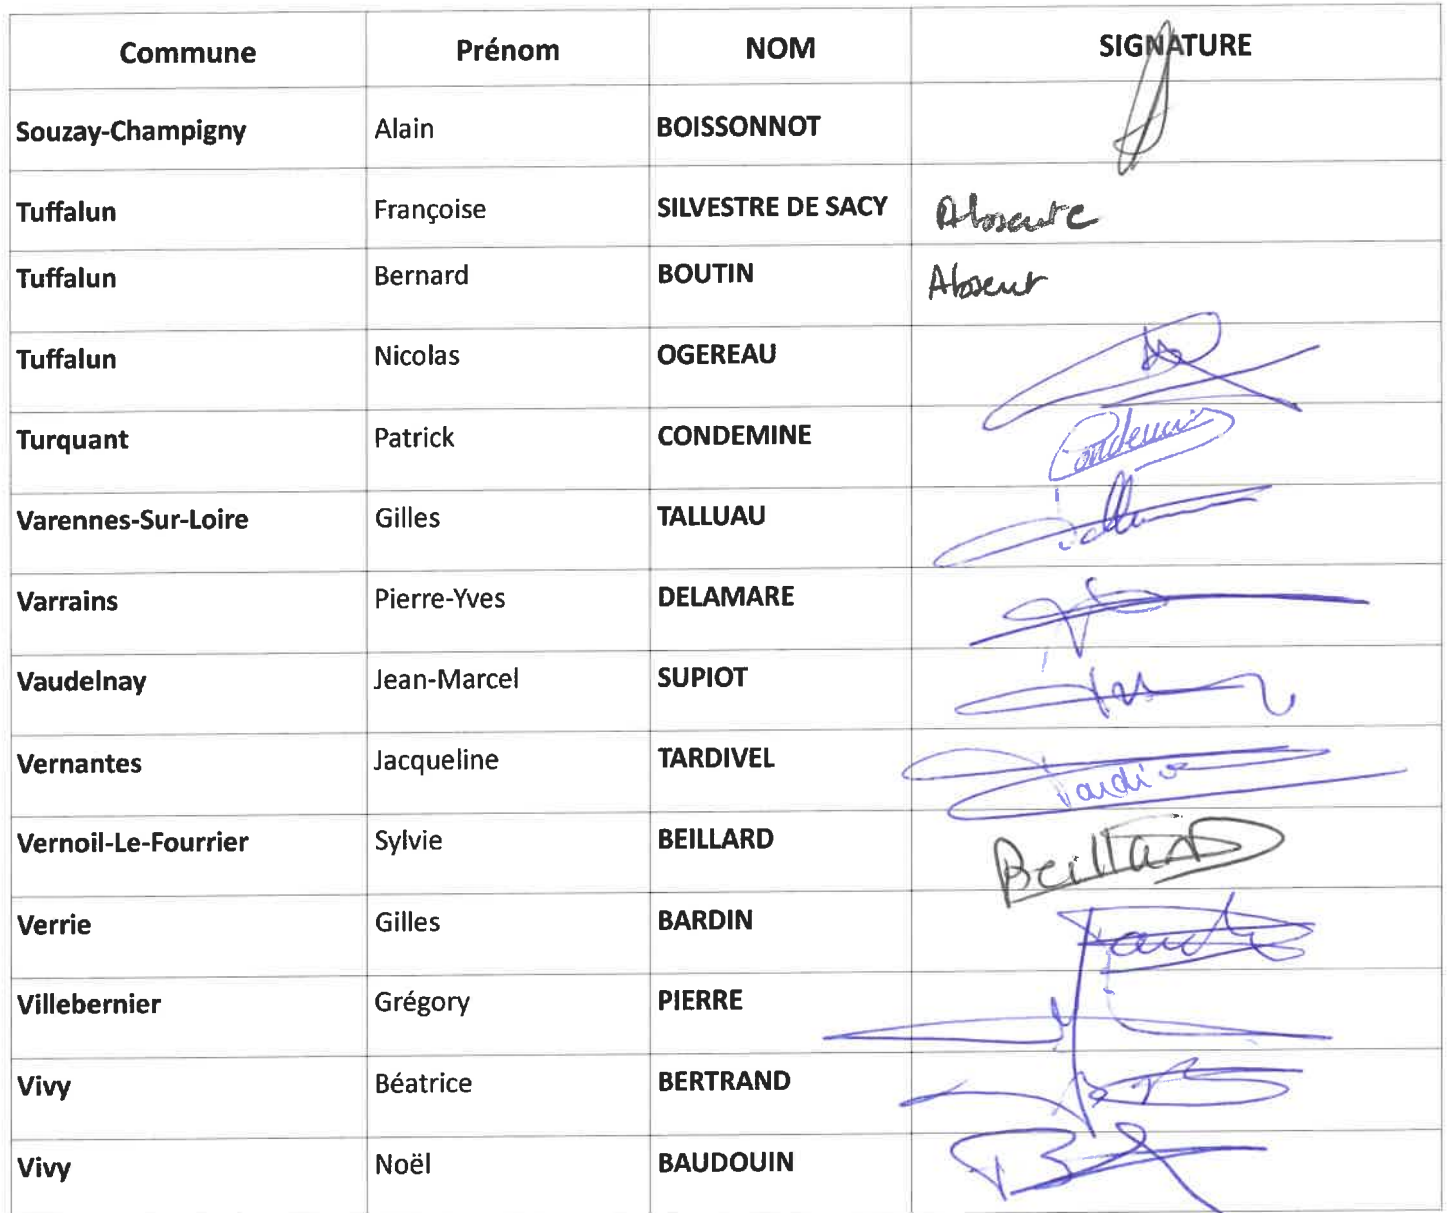 Commune Prénom NOM SIGNATURE
Souzay-Champigny Alain BOISSONNOT
Tuffalun Françoise SILVESTRE DE SACY Absente
Tuffalun Bernard BOUTIN Absent
Tuffalun Nicolas OGEREAU
Turquant Patrick CONDEMINE
Varennes-Sur-Loire Gilles TALLUAU
Varrains Pierre-Yves DELAMARE
Vaudelnay Jean-Marcel SUPIOT
Vernantes Jacqueline TARDIVEL
Vernoil-Le-Fourrier Sylvie BEILLARD Beillard
Verrie Gilles BARDIN
Villebernier Grégory PIERRE
Vivy Béatrice BERTRAND
Vivy Noël BAUDOUIN